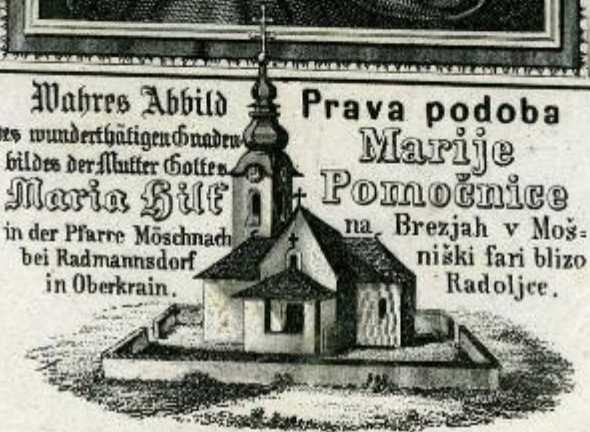 Wahres Abbild
des wunderthätigen Gnaden-
bildes der Mutter Gottes
Maria Hilf
in der Pfarre Möschnach
bei Radmannsdorf
in Oberkrain.
Prava podoba
Marije
Pomočnice
na Brezjah v Moš=
niški fari blizo
Radoljce.